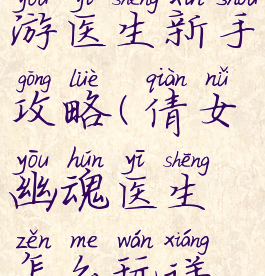 yóu yī shēng xīn shǒu
游医生新手
gōng lüè qiàn nǚ
攻略(倩女
yōu hún yī shēng
幽魂医生
zěn me wán xiáng
怎么玩详